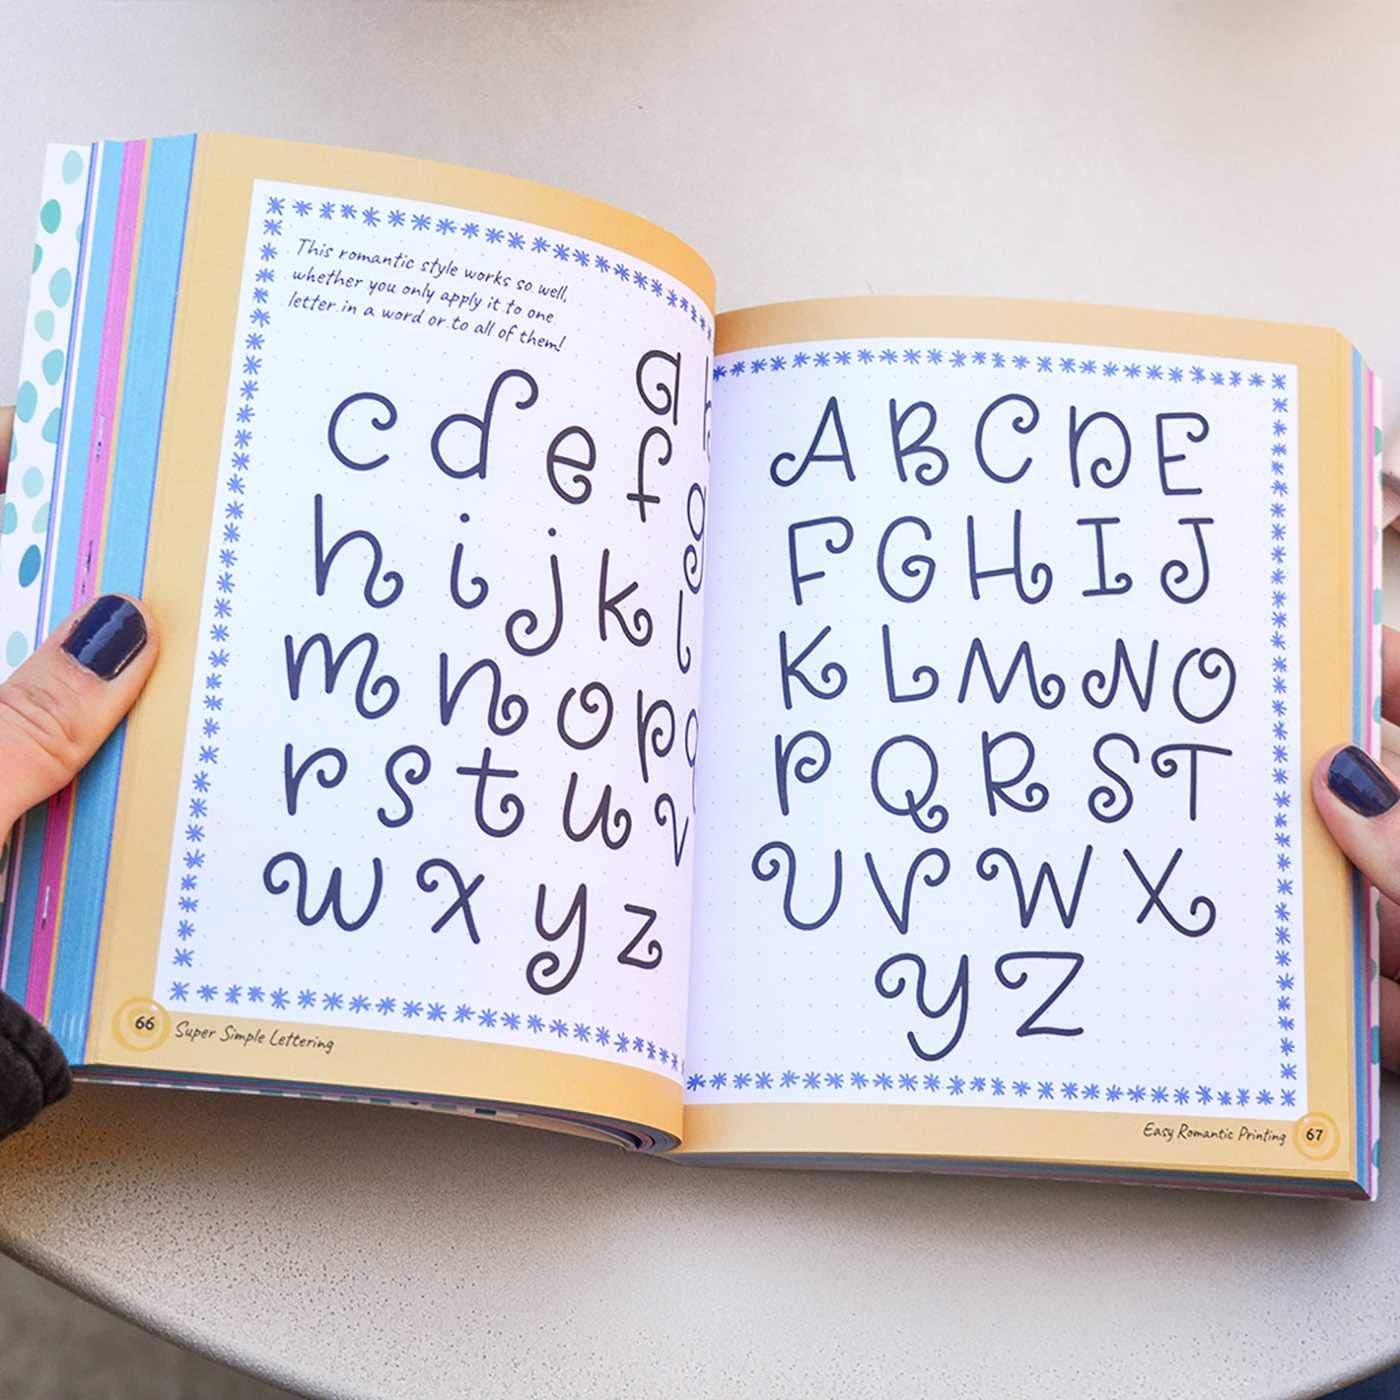 This romantic style works so well,
whether you only apply it to one
letter in a word or to all of them!
a
c d e f g
h i j k l
m n o p q
r s t u v
w x y z
66 Super Simple Lettering
A B C D E
F G H I J
K L M N O
P Q R S T
U V W X
Y Z
Easy Romantic Printing 67